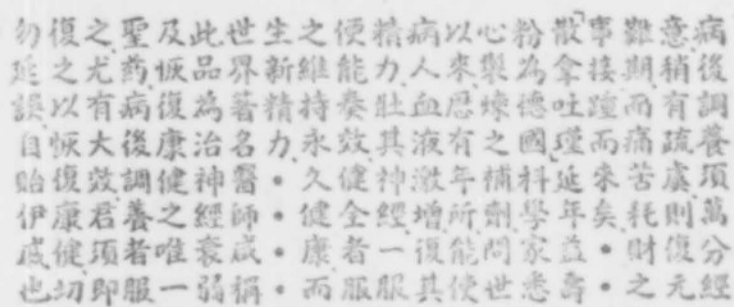 病後調養須萬分經
意稍有疏虞則復元
難期而痛苦耗財之
事接踵而來矣・・
「散拿吐瑾延年益壽
粉為德國」科學家悉
心製煉之補劑問世
以來恩有年所能使
病人血液激增復其
精力壯其神經一服
便能奏效健全者服
之維持永久健康而
生新精力・・・
世界著名醫師咸稱
此品為治神經衰弱
及恢復康健之唯一
聖药病後調養者服
之尤有大效君須即
復之以恢復康健切
勿延誤自貽伊戚也